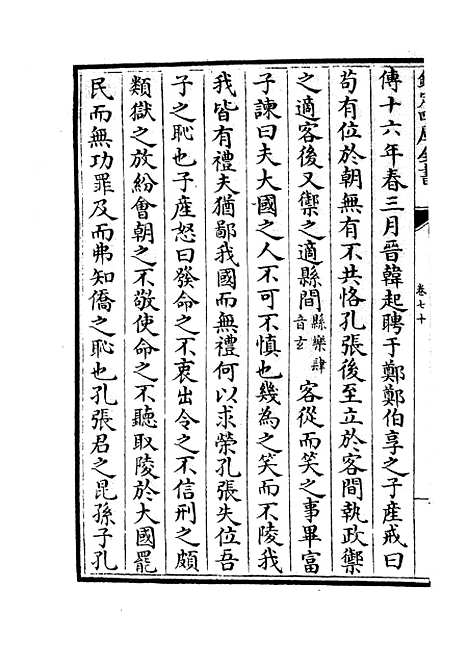 欽定四庫全書
卷七十
傳十六年春三月晉韓起聘于鄭鄭伯享之子産戒曰
苟有位於朝無有不共恪孔張後至立於客間執政禦
之適客後又禦之適縣間縣樂肆音玄客從而笑之事畢富
子諫曰夫大國之人不可不慎也幾為之笑而不陵我
我皆有禮夫猶鄙我國而無禮何以求榮孔張失位吾
子之恥也子産怒曰發命之不衷出令之不信刑之頗
類獄之放紛會朝之不敬使命之不聽取陵於大國罷
民而無功罪及而弗知僑之恥也孔張君之昆孫子孔